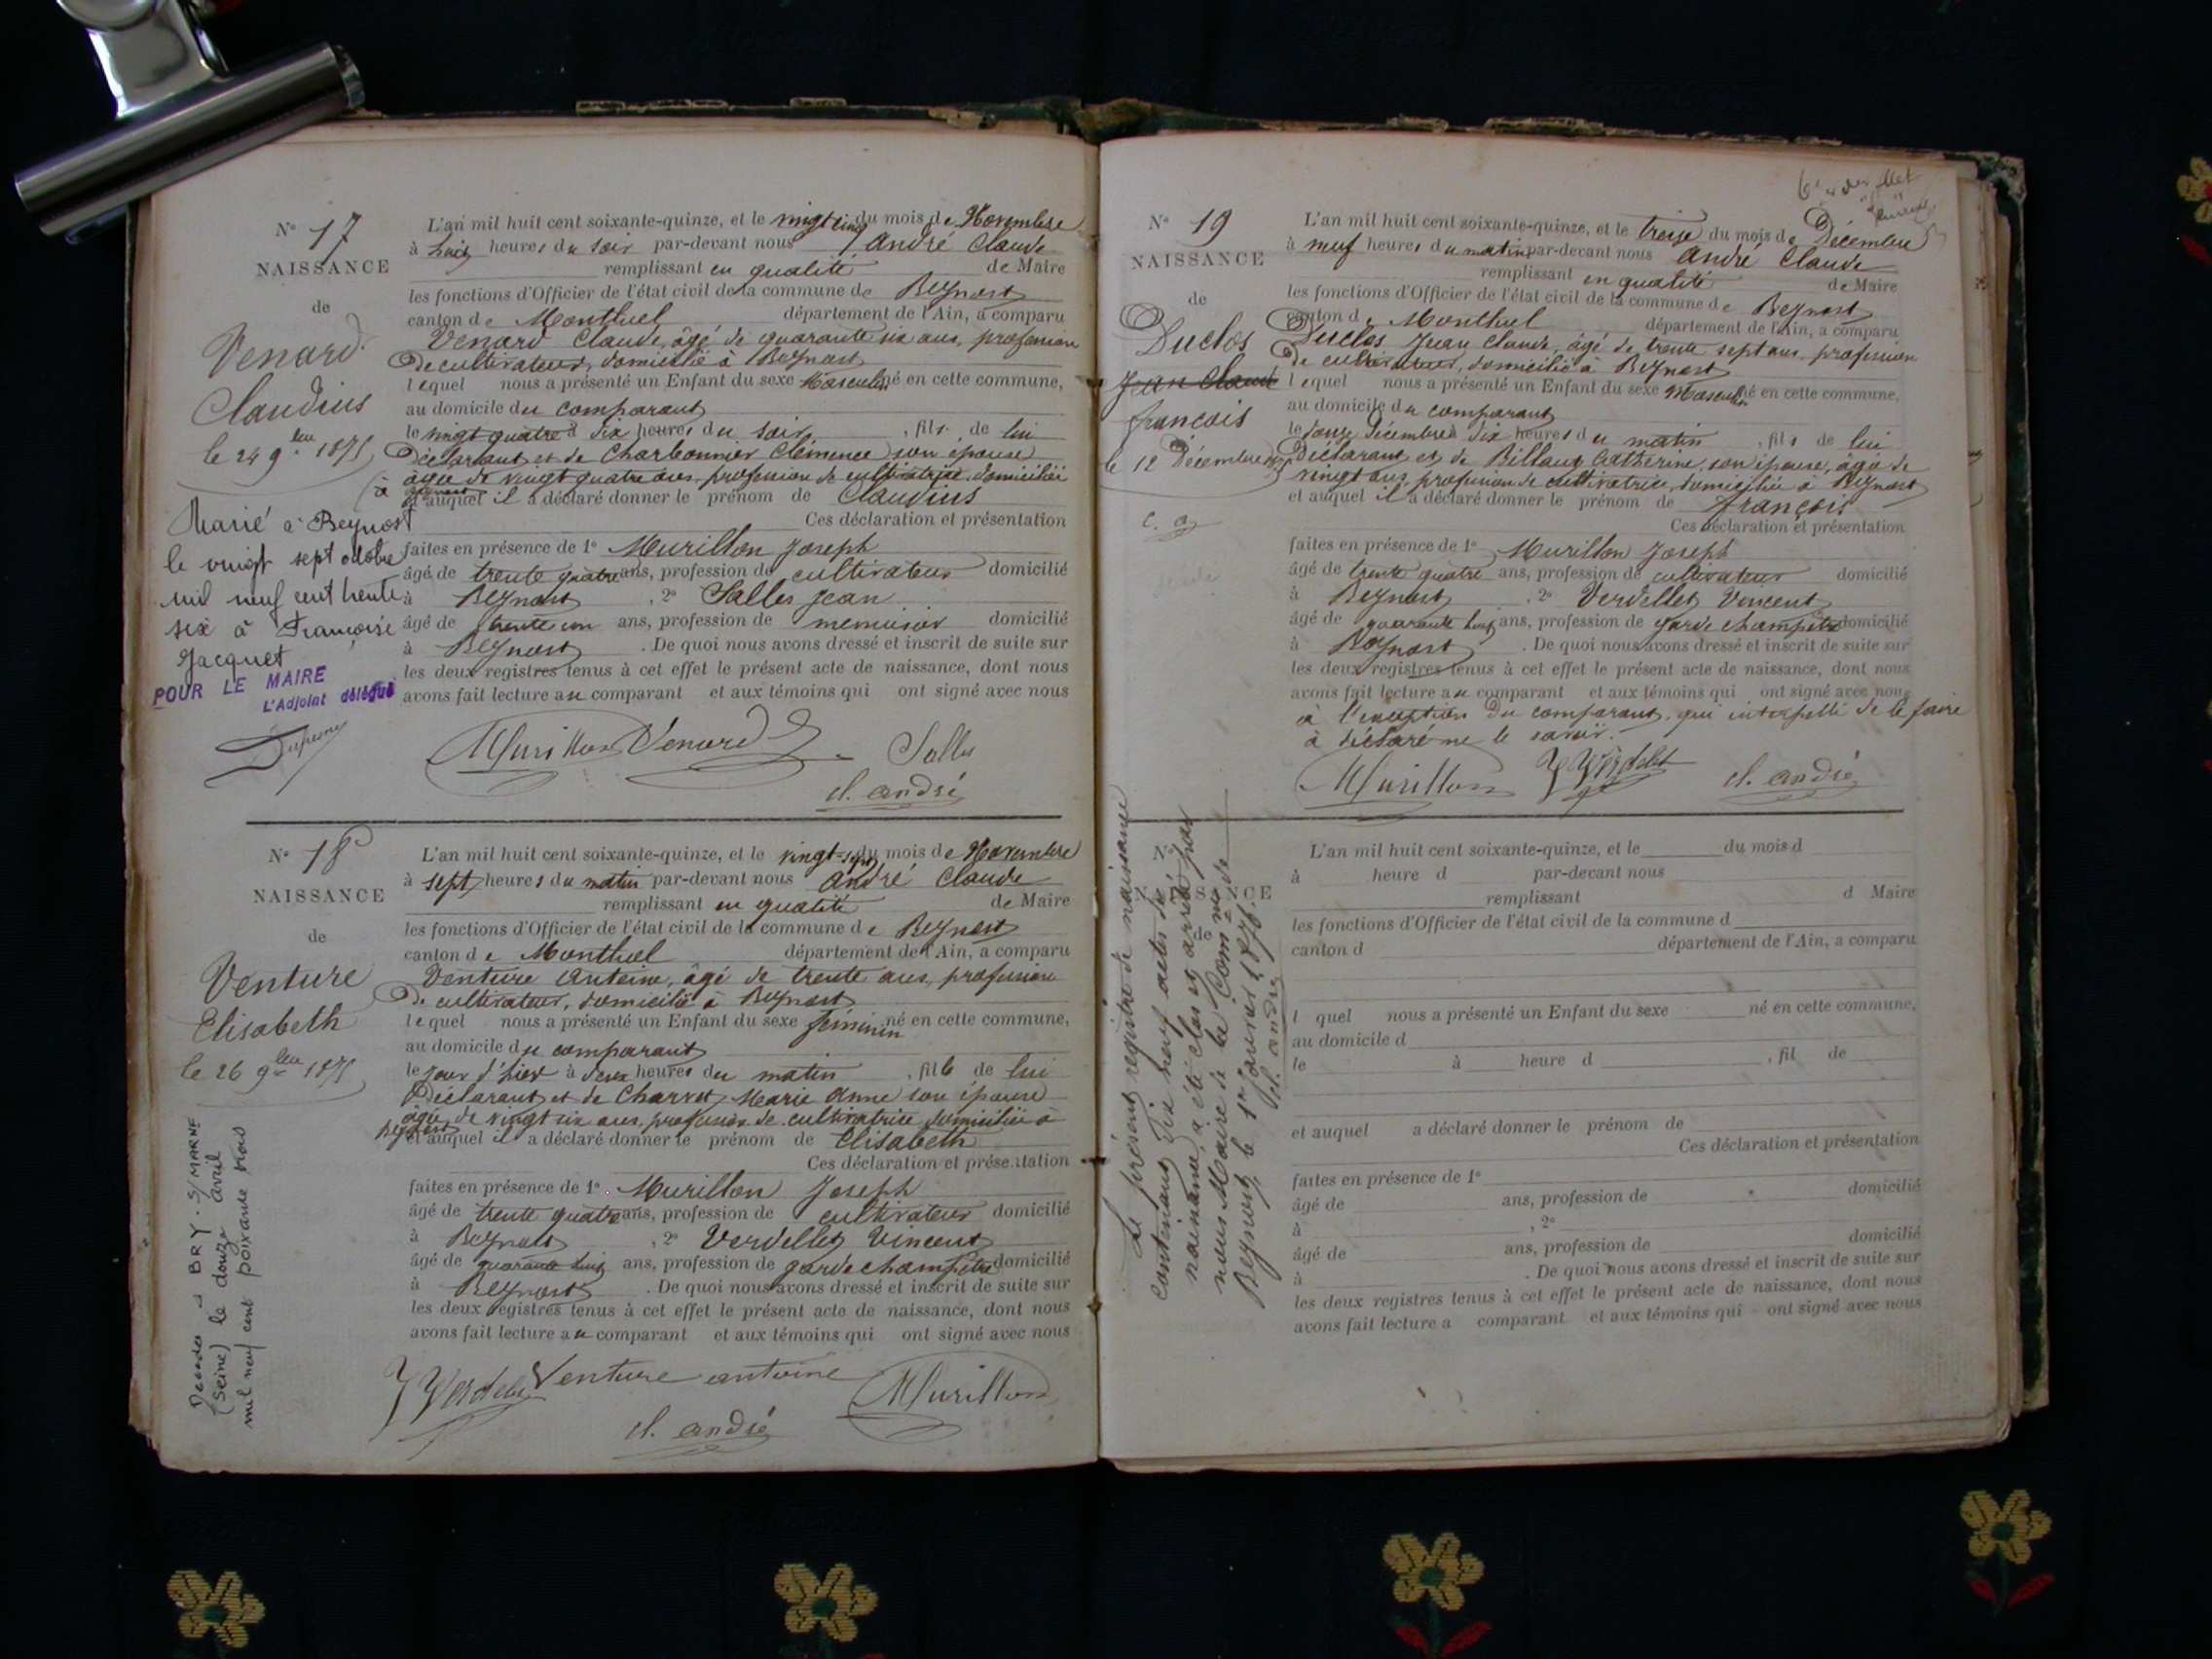 N° 17
NAISSANCE
de
Venard
Claudius
le 24 9bre 1875
Marié à Beynost
le vingt sept octobre
mil neuf cent trente
six à Françoise
Jacquet
POUR LE MAIRE
L'Adjoint délégué
L'an mil huit cent soixante-quinze, et le vingt cinq du mois de Novembre
à huit heures du soir par-devant nous André Claude
remplissant en qualité de Maire
les fonctions d'Officier de l'état civil de la commune de Beynost
canton de Montluel département de l'Ain, a comparu
Venard Claude, âgé de quarante six ans, profession
de cultivateur, domicilié à Beynost
lequel nous a présenté un Enfant du sexe Masculin né en cette commune,
au domicile du comparant
le vingt quatre à dix heures du soir, fils de lui
Déclarant et de Charbonnier Clémence son épouse
âgée de vingt quatre ans, profession de cultivatrice domiciliée
à Beynost
et auquel il a déclaré donner le prénom de Claudius
Ces déclaration et présentation
faites en présence de 1° Murillon Joseph
âgé de trente quatre ans, profession de cultivateur domicilié
à Beynost, 2° Salles Jean
âgé de trente un ans, profession de menuisier domicilié
à Beynost. De quoi nous avons dressé et inscrit de suite sur
les deux registres tenus à cet effet le présent acte de naissance, dont nous
avons fait lecture au comparant et aux témoins qui ont signé avec nous
Murillon Venard Salles
cl. andré
N° 18
NAISSANCE
de
Venture
Elisabeth
le 26 9bre 1875
Décédée à BRY-S/MARNE
(Seine) le douze avril
mil neuf cent soixante trois
L'an mil huit cent soixante-quinze, et le vingt-sept du mois de Novembre
à sept heures du matin par-devant nous André Claude
remplissant en qualité de Maire
les fonctions d'Officier de l'état civil de la commune de Beynost
canton de Montluel département de l'Ain, a comparu
Venture Antoine, âgé de trente ans, profession
de cultivateur, domicilié à Beynost
lequel nous a présenté un Enfant du sexe féminin né en cette commune,
au domicile du comparant
le jour d'hier à deux heures du matin, fille de lui
Déclarant et de Charvet Marie Anne son épouse
âgée de vingt six ans, profession de cultivatrice domiciliée à
Beynost
et auquel il a déclaré donner le prénom de Elisabeth
Ces déclaration et présentation
faites en présence de 1° Murillon Joseph
âgé de trente quatre ans, profession de cultivateur domicilié
à Beynost, 2° Verdellet Vincent
âgé de quarante huit ans, profession de garde champêtre domicilié
à Beynost. De quoi nous avons dressé et inscrit de suite sur
les deux registres tenus à cet effet le présent acte de naissance, dont nous
avons fait lecture au comparant et aux témoins qui ont signé avec nous
Venture antoine Murillon
cl. andré
N° 19
NAISSANCE
de
Duclos
Jean Claude
françois
le 12 Décembre 1875
L'an mil huit cent soixante-quinze, et le treize du mois de Décembre
à neuf heures du matin par-devant nous André Claude
remplissant en qualité de Maire
les fonctions d'Officier de l'état civil de la commune de Beynost
canton de Montluel département de l'Ain, a comparu
Duclos Jean Claude, âgé de trente sept ans, profession
de cultivateur, domicilié à Beynost
lequel nous a présenté un Enfant du sexe Masculin né en cette commune,
au domicile du comparant
le douze Décembre à dix heures du matin, fils de lui
Déclarant et de Billaud Catherine, son épouse, âgée de
vingt ans, profession de cultivatrice, domiciliée à Beynost
et auquel il a déclaré donner le prénom de françois
Ces déclaration et présentation
faites en présence de 1° Murillon Joseph
âgé de trente quatre ans, profession de cultivateur domicilié
à Beynost, 2° Verdellet Vincent
âgé de quarante huit ans, profession de garde champêtre domicilié
à Beynost. De quoi nous avons dressé et inscrit de suite sur
les deux registres tenus à cet effet le présent acte de naissance, dont nous
avons fait lecture au comparant et aux témoins qui ont signé avec nous
à l'exception du comparant, qui interpellé de le faire
à déclaré ne le savoir.
Murillon cl. andré
Le présent registre de naissance
contenant dix neuf actes de
naissance, a été clos et arrêté par
nous Maire de la Commune de
Beynost le 1er Janvier 1876.
cl. andré
L'an mil huit cent soixante-quinze, et le du mois d
à heure d par-devant nous
remplissant d Maire
les fonctions d'Officier de l'état civil de la commune d
canton d département de l'Ain, a comparu
l quel nous a présenté un Enfant du sexe né en cette commune,
au domicile d
le à heure d , fil de
et auquel a déclaré donner le prénom de
Ces déclaration et présentation
faites en présence de 1°
âgé de ans, profession de domicilié
à , 2°
âgé de ans, profession de domicilié
à . De quoi nous avons dressé et inscrit de suite sur
les deux registres tenus à cet effet le présent acte de naissance, dont nous
avons fait lecture a comparant et aux témoins qui ont signé avec nous